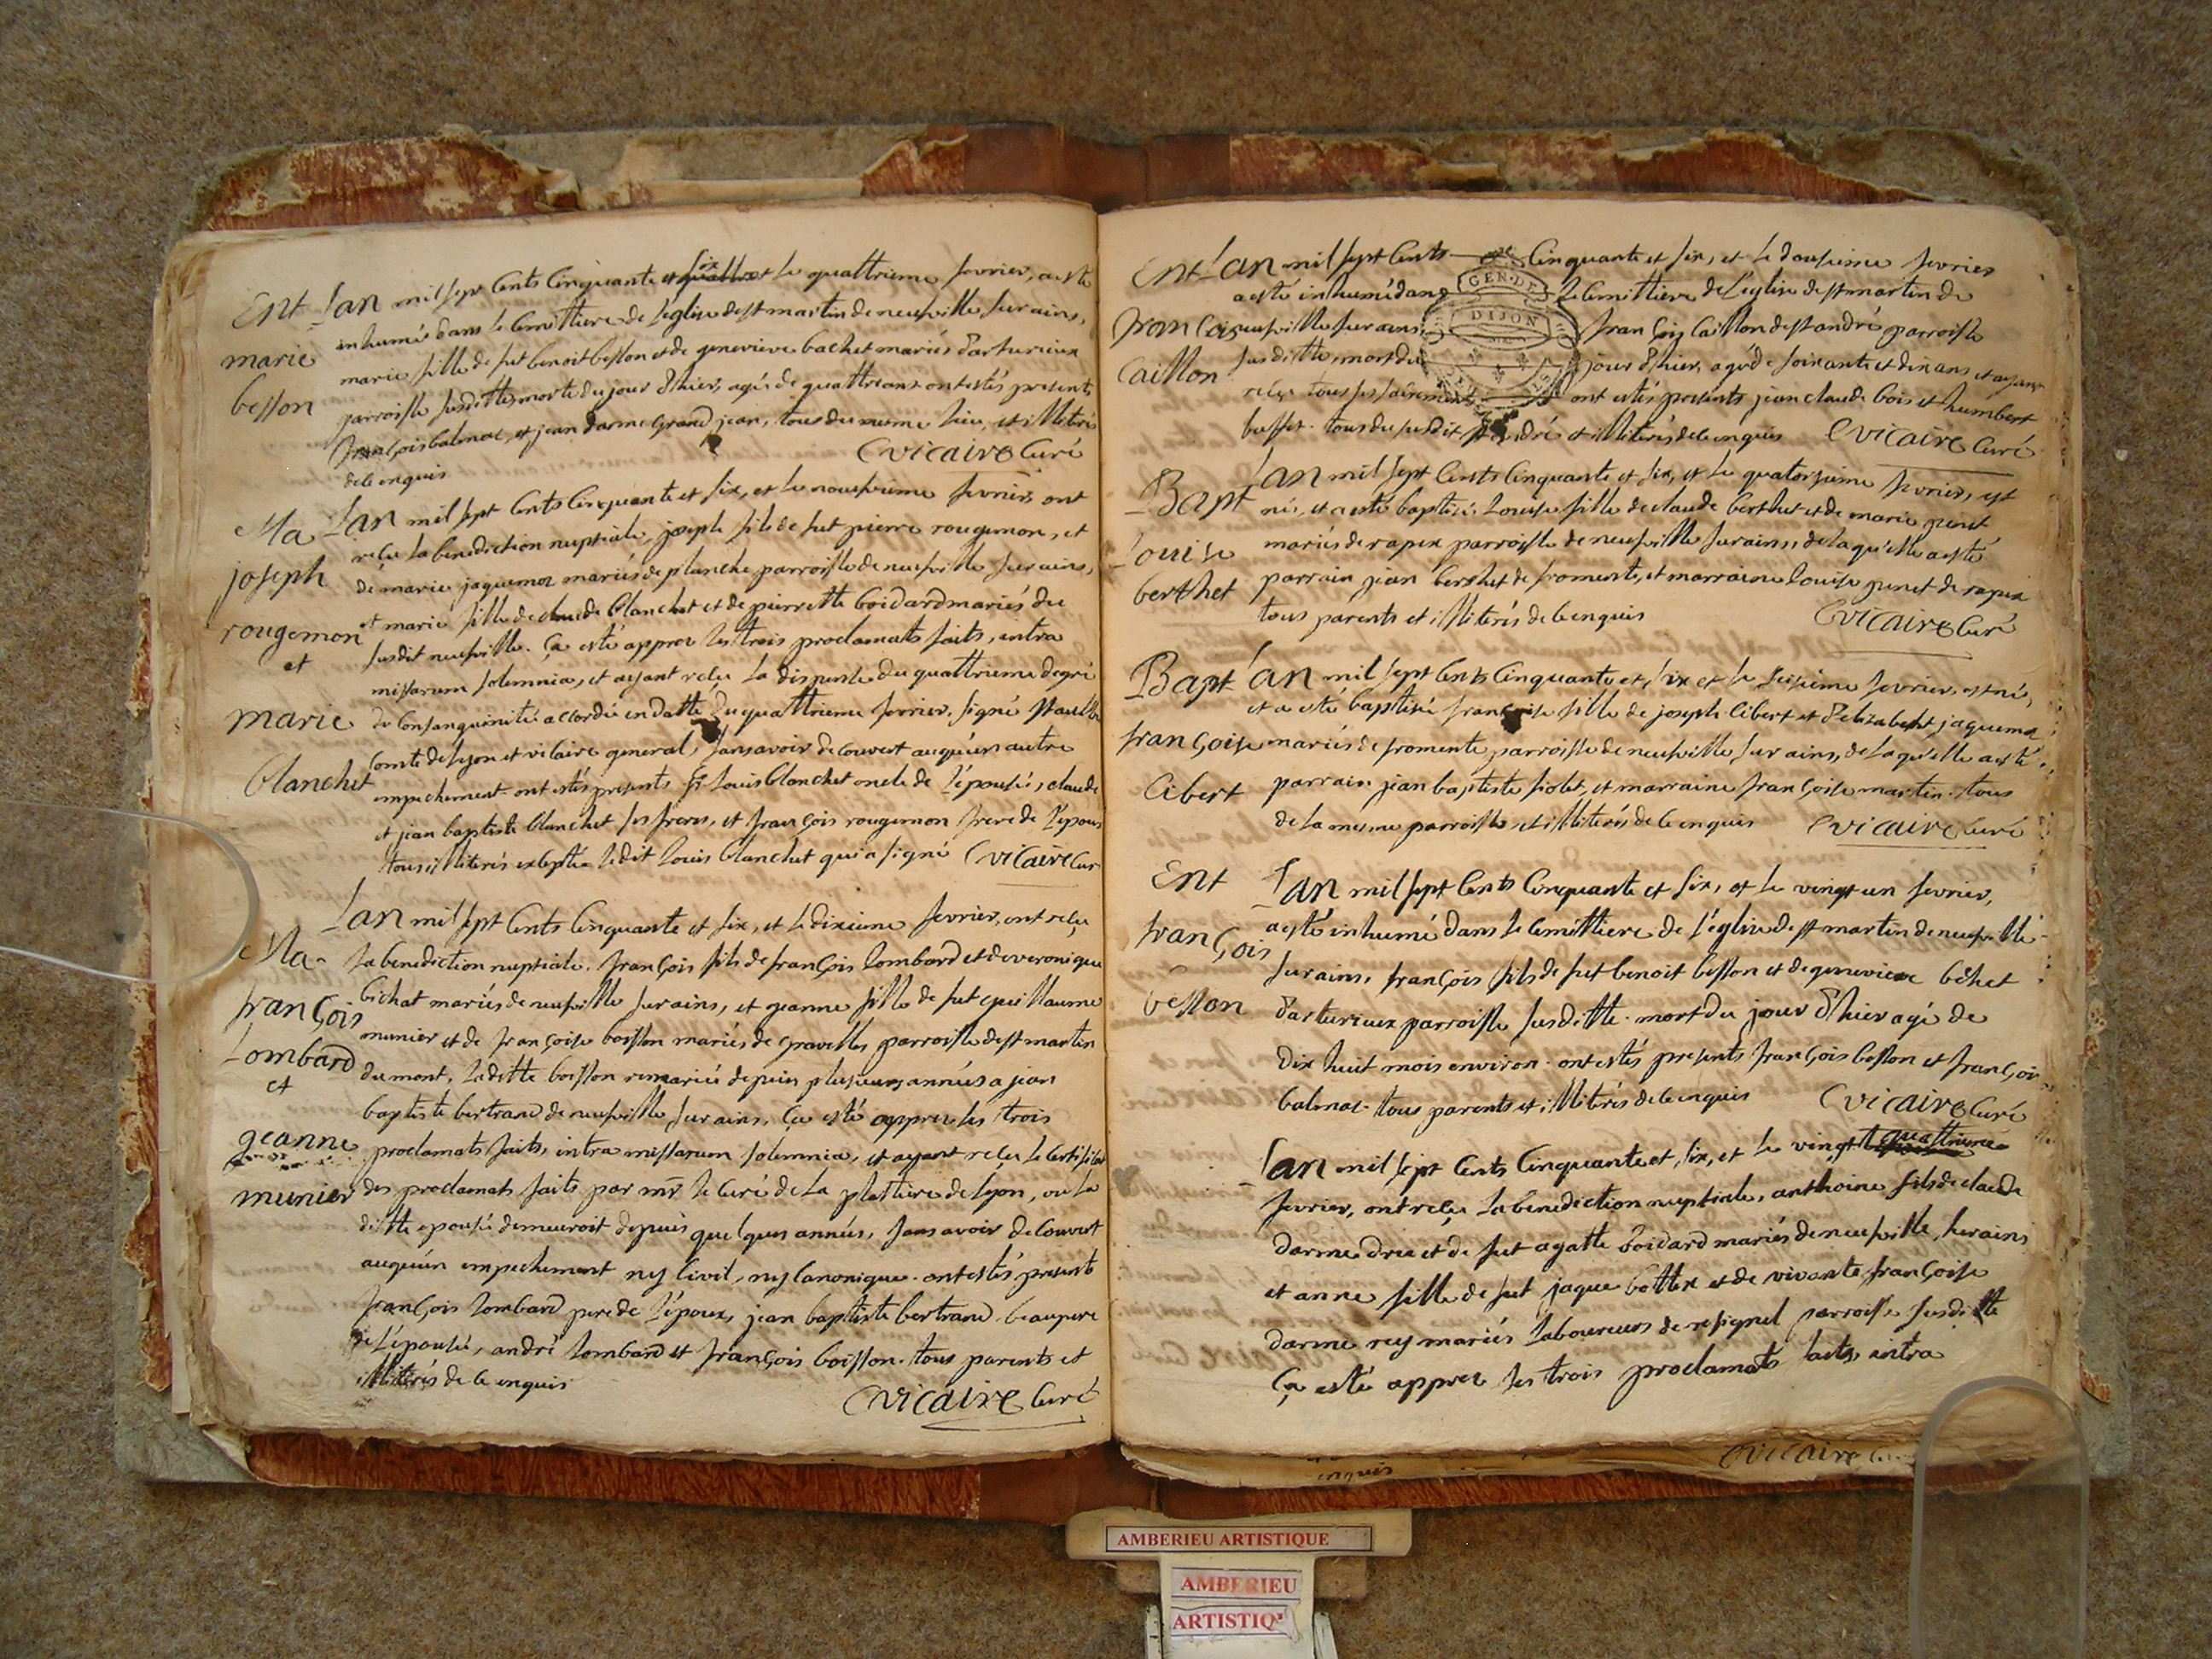 Ent Lan mil sept Cents Cinquante et six et le quattrieme fevrier, a esté
inhumé dans le Cemittiere de l'eglise de st martin de neufville sur ains,
marie marie fille de fut benoit besson et de genevieve bachet mariés d'arturieux
besson parroisse susditte, morte du jour d'hier, agée de quattre ans ont estés presents
françois balenat, et jean darme grand jean, tous du mesme lieu, et illiterés
de ce enquis Cvicaire Curé
Ma Lan mil sept Cents Cinquante et six, et le nousvieme fevrier, ont
reçu la benediction nuptiale, joseph fils de fut pierre rougemon, et
joseph de marie jaquemoz mariés de planche parroisse de neufville sur ains,
rougemon et marie fille de claude blanchet et de pierrette boidard mariés du
et susdit neufville. Ça esté apprez les trois proclamats faits, intra
missarum solemnia, et ayant reçu la dispense du quattrieme degré
marie de Consanguinité accordée en datte du quattrieme fevrier, signé
Comte de lyon et vicaire general, sans avoir decouvert auquéun autre
blanchet empechement. ont estés presents Sr Louis blanchet oncle de l'épousée, claude
et jean baptiste blanchet ses freres, et françois rougemon frere de l'epoux
tous illiterés exceptée ledit louis blanchet qui a signé Cvicaire Cur
Lan mil sept Cents Cinquante et six, et le dixieme fevrier, ont reçu
Ma- la benediction nuptiale, françois fils de françois lombard et de veronique
françois bichat mariés de neufville sur ains, et jeanne fille de fut guillaume
munier et de françoise boisson mariés de gravelles parroisse de st martin
Lombard du mont, ladette boisson remariée depuis plusieurs années a jean
et baptiste bertrand de neufville sur ains. Ça esté apprez les trois
geanne proclamats faits, intra missarum solemnia, et ayant reçu le Certificat
munier des proclamats faits par mr le Curé de la plattiere de lyon, ou la
ditte epousée demeuroit depuis quelques années, sans avoir decouvert
auquéun empechement ny Civil, ny Canonique. ont estés presents
françois lombard pere de l'époux, jean baptiste bertrand beaupere
de l'épousée, andré lombard et françois boisson. tous parents et
illiterés de ce enquis
Cvicaire Curé
Ent Lan mil sept Cents Cinquante et six, et le dousieme fevrier
a esté inhumé dans le Cemittiere de l'église de st martin de
françois neufville sur ains, françois Caillon de st andré parroisse
Caillon susditte, mort du jour d'hier, agé de soixante et dix ans et ayant
reçu tous ses sacrements ont estés presents jean claude bois et humbert
buffet. tous du susdit st andré et illiterés de ce enquis Cvicaire Curé
Bapt Lan mil sept Cents Cinquante et six, et le quatorsieme fevrier, est
née, et a esté baptisée Louise fille de claude berthet et de marie genet
Louise mariés de rapex parroisse de neufville sur ains, de laqu'elle a esté
berthet parrain jean berthet de fromente, et marraine louise genet de rapex
tous parents et illiterés de ce enquis Cvicaire Curé
Bapt Lan mil sept Cents Cinquante et, six et le seisieme fevrier, est née,
et a esté baptisée françoise fille de joseph Cibert et d'elizabeht jaquema
françoise mariés de fromente, parroisse de neufville sur ains, de laqu'elle a esté
Cibert parrain jean baptiste fiolet, et marraine françoise martin. tous
de la mesme parroisse, et illiterés de ce enquis Cvicaire Curé
Ent Lan mil sept Cents Cinquante et six, et le vingt un fevrier,
a esté inhumé dans le Cemittiere de l'église de st martin de neufville
françois sur ains, françois fils de fut benoit besson et de genevieve bêhet
besson d'arturieux parroisse susditte. mort du jour d'hier agé de
dix huit mois environ. ont estés presents françois besson et françois
balenat. tous parents et illiterés de ce enquis Cvicaire Curé
Lan mil sept Cents Cinquante et, six, et le vingt quattrieme
fevrier, ont reçu la benediction nuptiale, anthoine fils de claude
darme drie et de fut agatte boidard mariés de neufville, sur ains
et anne fille de fut jaque bottex et de vivante françoise
darme rey mariés laboureurs de resignel parroisse susditte
Ça esté apprez les trois proclamats faits, intra
enquis Cvicaire
GEN. DE
DIJON
AMBERIEU ARTISTIQUE
AMBERIEU
ARTISTIQ